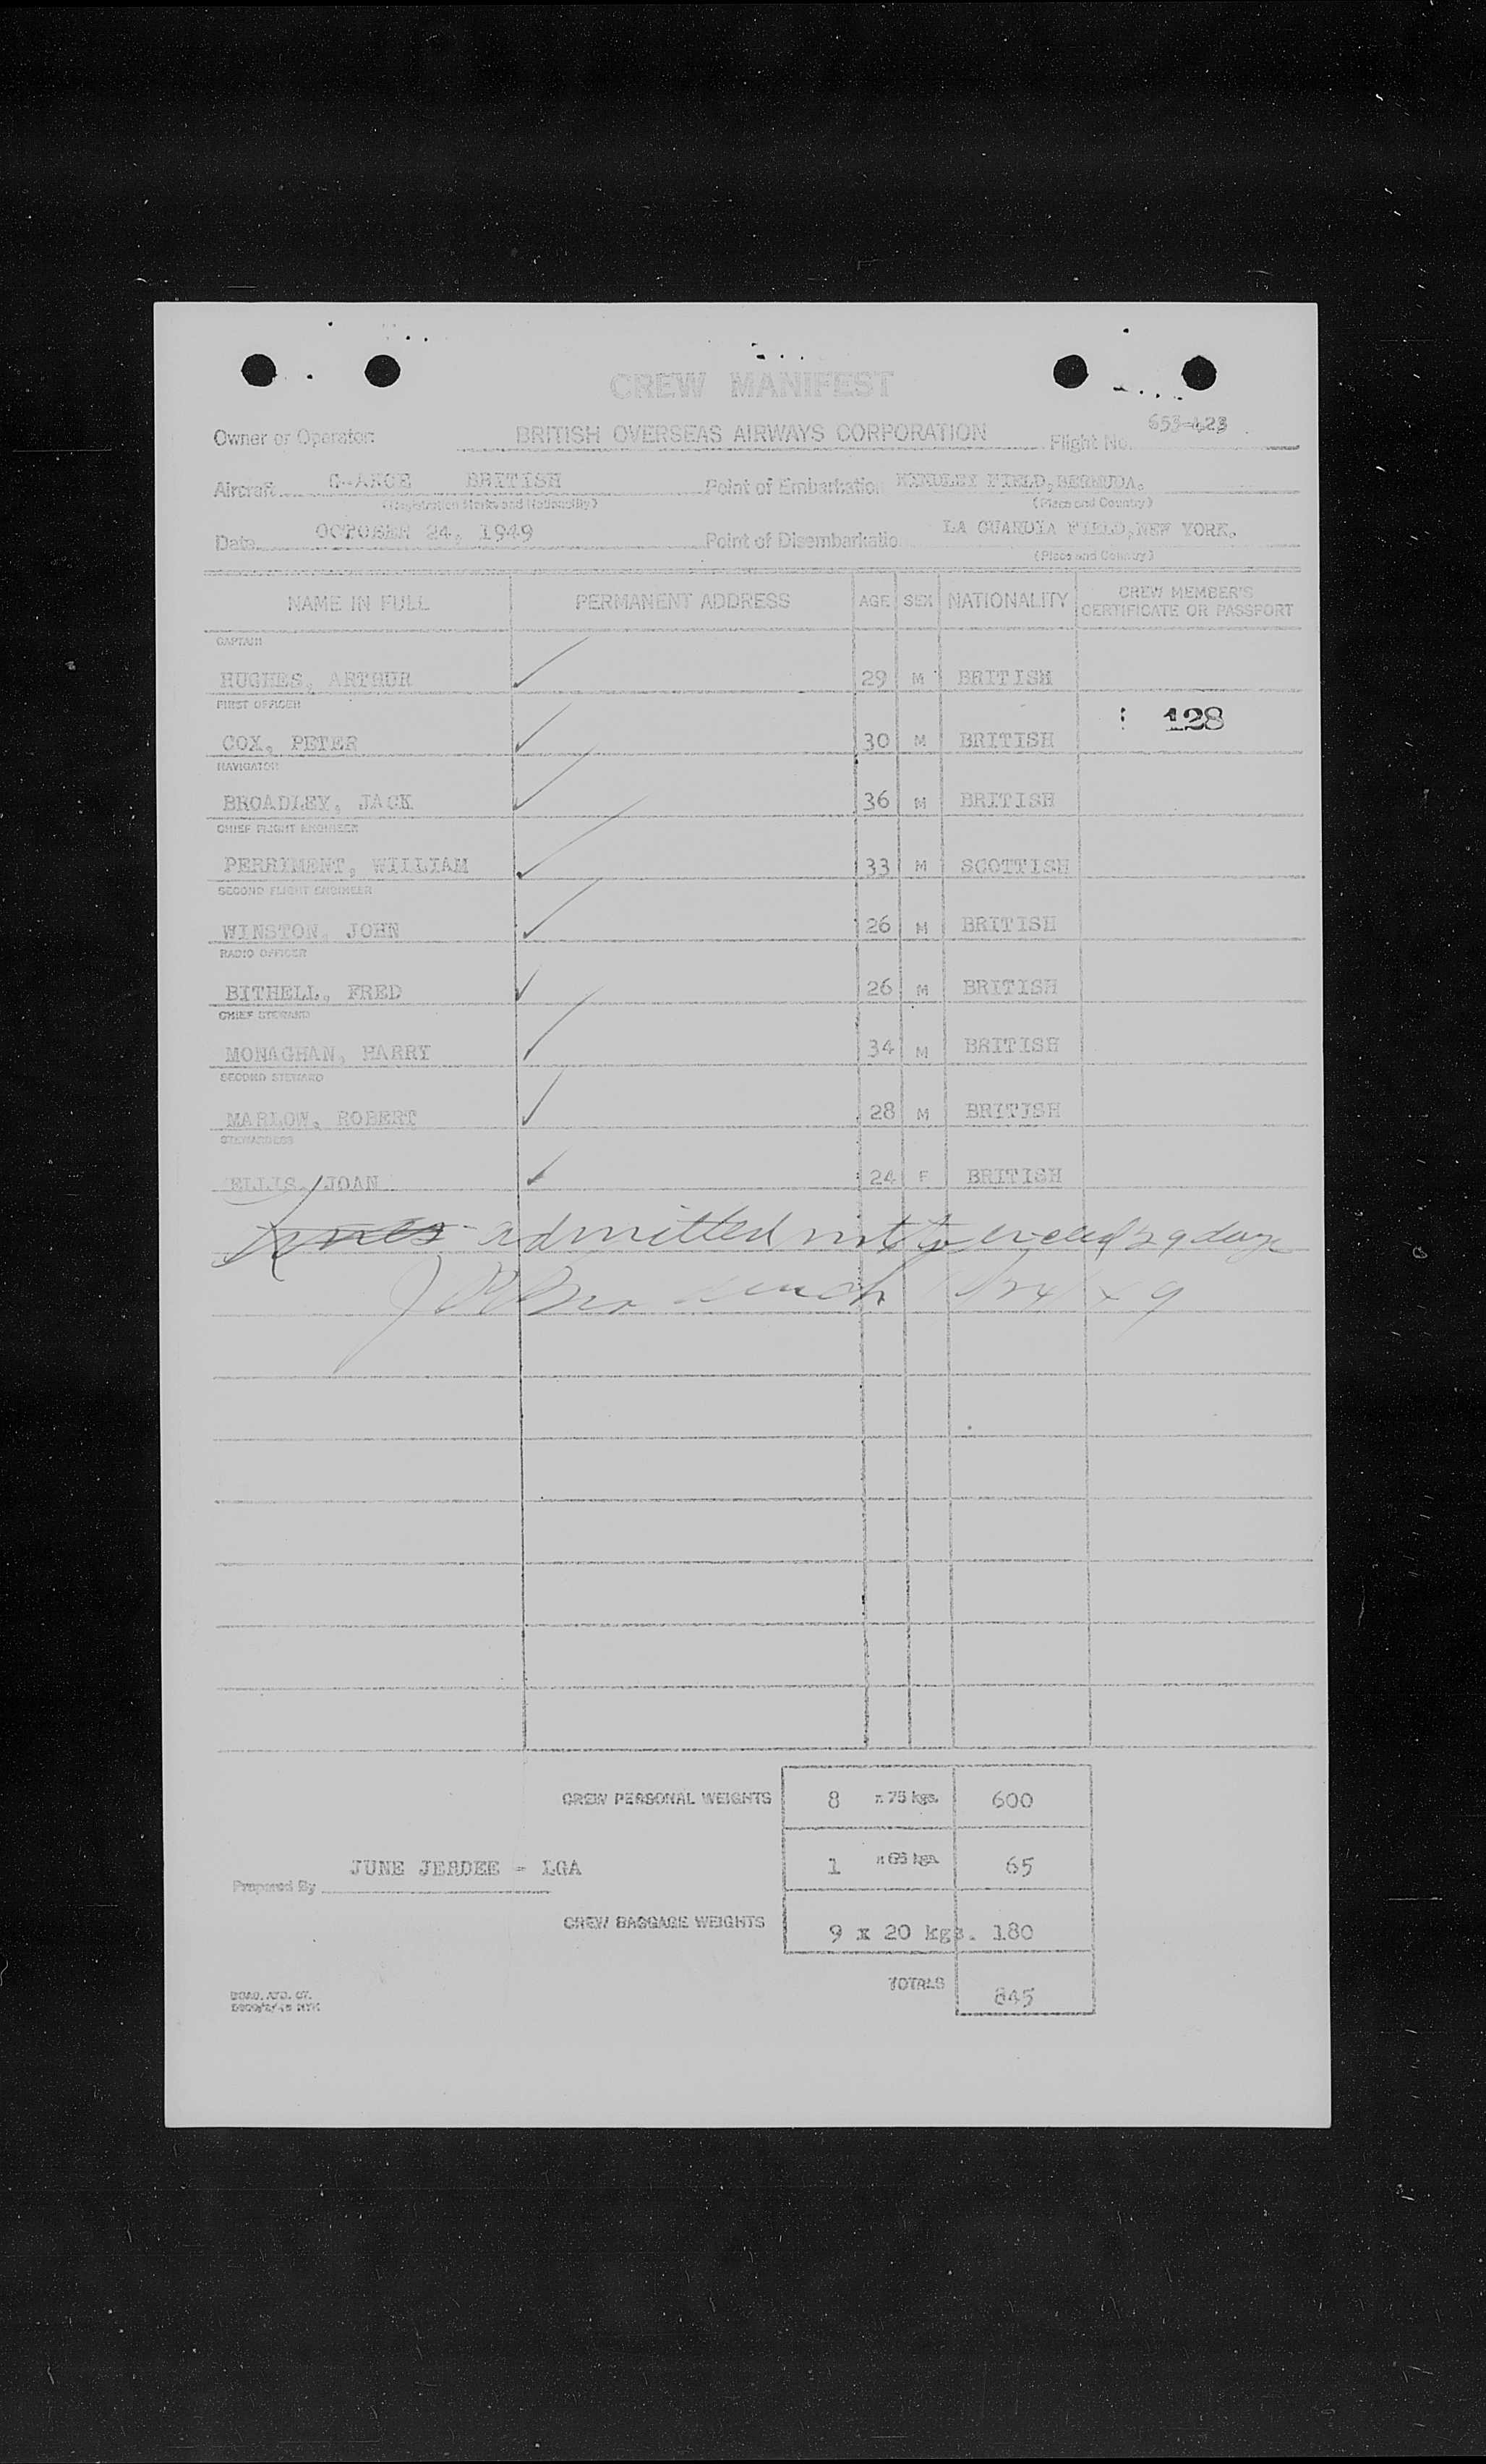 CREW MANIFEST
Owner or Operator: BRITISH OVERSEAS AIRWAYS CORPORATION Flight No. 653-423
Aircraft BRITISH Point of Embarkation KINDLEY FIELD, BERMUDA.
(Registration Marks and Nationality) (Place and Country)
Date OCTOBER 24, 1949 Point of Disembarkatio LA GUARDIA FIELD, NEW YORK.
(Place and Country)
NAME IN FULL PERMANENT ADDRESS AGE SEX NATIONALITY CREW MEMBER'S CERTIFICATE OR PASSPORT
CAPTAIN
HUGHES, ARTHUR 29 M BRITISH
FIRST OFFICER
128
COX, PETER 30 M BRITISH
NAVIGATOR
BROADLEY, JACK 36 M BRITISH
CHIEF FLIGHT ENGINEER
PERRIMENT, WILLIAM 33 M SCOTTISH
SECOND FLIGHT ENGINEER
WINSTON, JOHN 26 M BRITISH
RADIO OFFICER
BITHELL, FRED 26 M BRITISH
CHIEF STEWARD
MONAGHAN, HARRY 34 M BRITISH
SECOND STEWARD
MARLOW, ROBERT 28 M BRITISH
STEWARDESS
ELLIS, JOAN 24 F BRITISH
admitted not to exceed 29 days
CREW PERSONAL WEIGHTS 8 x 75 kgs. 600
1 x 65 kgs. 65
JUNE JERDEE - LGA
Prepared By
CREW BAGGAGE WEIGHTS 9 x 20 kgs. 180
TOTALS 845